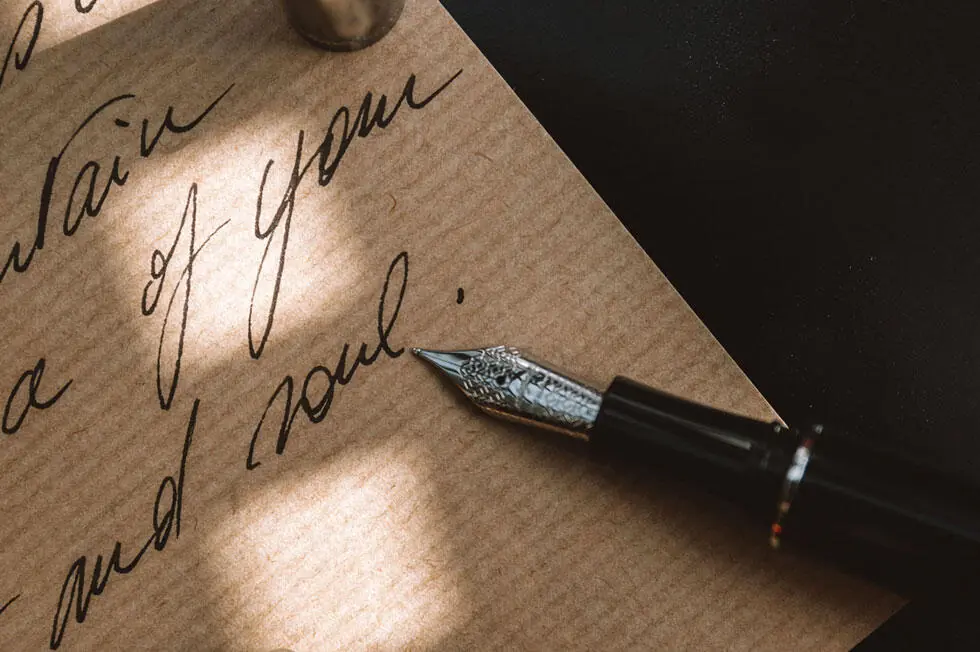 tain
a of your
and soul.